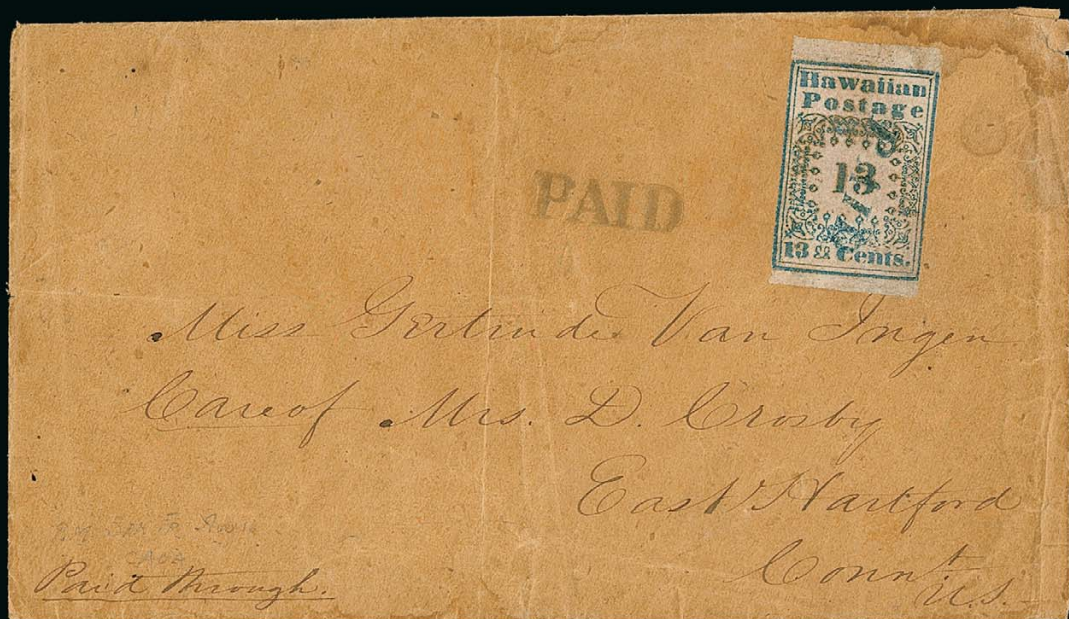 Hawaiian
Postage
13
13 Cents.
PAID
Miss Gertrude Van Ingen
Care of Mrs. D. Crosby
East Hartford
Connt
U.S.
Paid through.